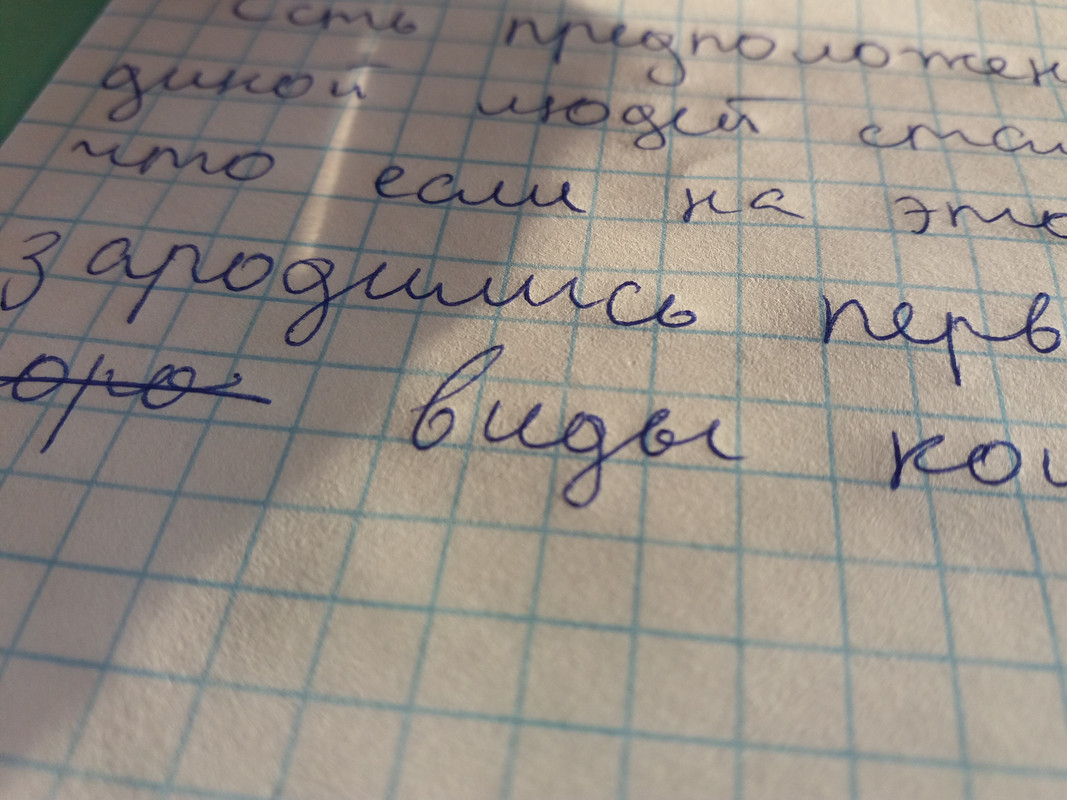 Есть предположен
диной людей стал
что если на это
зародились перв
оро виды ко